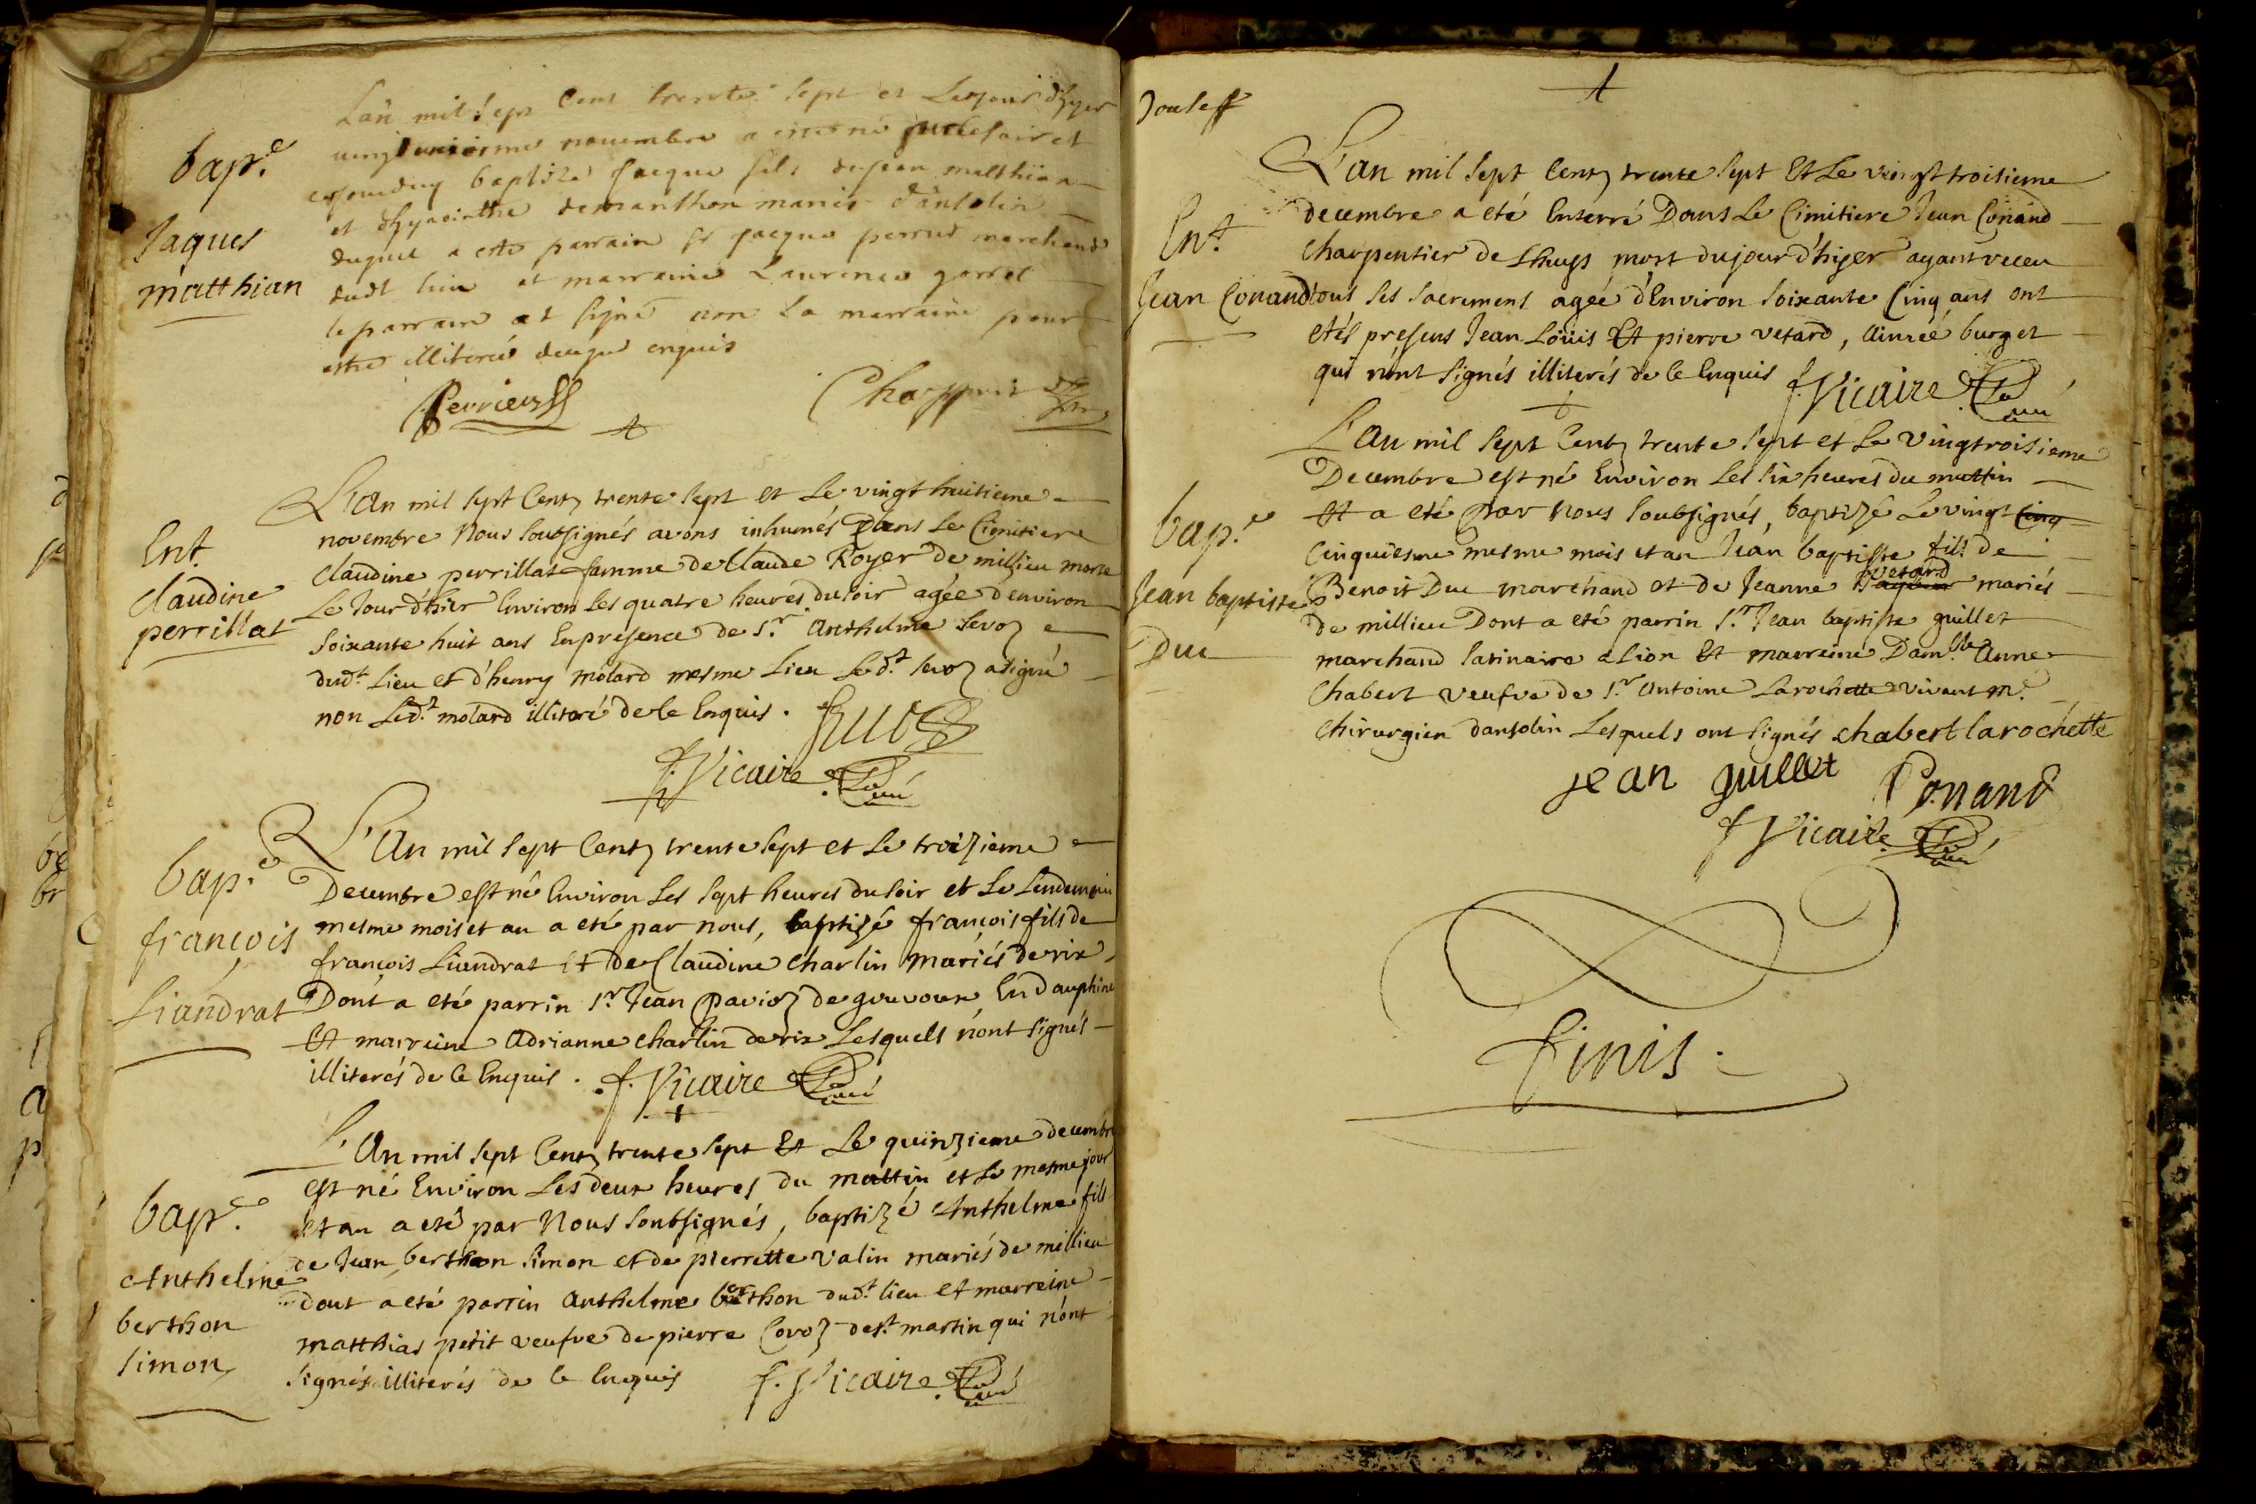 bap.e
Jaques
matthian
L'an mil sept cent trente sept et le jour d'hyer
novembre a este né
baptizé Jacque fils de Jean matthian
et d'hyacinthe demanthon mariés d'antolin
duquel a esté parrain sr Jacque perrud marchand
dudt lieu et marraine Laurence
le parrain at signé non la marraine pour
estre illiterée de ce que enquis
Ent.
Claudine
perrillat
L'an mil sept Cents trente sept et Le vingt huitieme
novembre Nous soubsignés avons inhumés Dans Le Cimitiere
Claudine perrillat famme de Claude Royer de millieu morte
Le Jour d'hier Environ Les quatre heures du soir agée d'environ
soixante huit ans En presence de s.r Anthelme sevoz
dud.t Lieu et d'henry molard mesme Lieu Led.t sevoz a signé
non Led.t molard illiteré de Ce Enquis.
f. Vicaire Curé
bap.e
françois
Liandrat
L'An mil sept Cents trente sept et Le troizieme
Decembre est né Environ Les sept heures du soir et Le Lendemain
mesme mois et an a eté par nous, baptizé françois fils de
françois Liandrat Et de Claudine Charlin Mariés de rix
Dont a eté parrin s.r Jean Pavioz de gouvoux En dauphiné
Et marreine Adrianne Charlin de rix Lesquels n'ont signés
illiterés de Ce Enquis. f. Vicaire Curé
bap.e
Anthelme
berthon
simon
L'An mil sept Cents trente sept Et Le quinzieme decembre
est né Environ Les deux heures du mattin et Le mesme jour
et an a eté par Nous soubsignés, baptizé Anthelme fils
de Jean berthon simon et de pierrette valin mariés de millieu
dont a eté parrin Anthelme berthon dud.t lieu et marreine
matthias petit veufve de pierre Covoz de st martin qui n'ont
signés illiterés de Ce Enquis f. Vicaire Curé
En.t
Jean Conand
L'an mil sept Cents trente sept Et Le vingt troisieme
decembre a eté Enterré Dans Le Cimitiere Jean Conand
Charpentier de Lhuys mort du jour d'hiyer ayant receu
tous ses sacremens agée d'Environ soixante Cinq ans ont
etés presens Jean Loüis Et pierre vetard, aimée burget
qui n'ont signés illiterés de Ce Enquis f. Vicaire Curé
bap.e
Jean baptiste
Duc
L'An mil sept Cents trente sept et Le vingtroisieme
Decembre est né Environ Les six heures du mattin
Et a eté Par Nous soubsignés, baptizé Le vingt Cinq
Cinquiesme mesme mois et an Jean baptiste fils de
Benoit Duc marchand et de Jeanne vetard mariés
de millieu Dont a eté parrin s.r Jean baptiste guillet
marchand satinaire a Lion Et marreine Dam.lle Anne
Chabert veufve de s.r Antoine Larochette vivant m.e
chirurgien dantolin Lesquels ont signés chabert larochette
jean guillet Conand
f Vicaire Curé
finis.